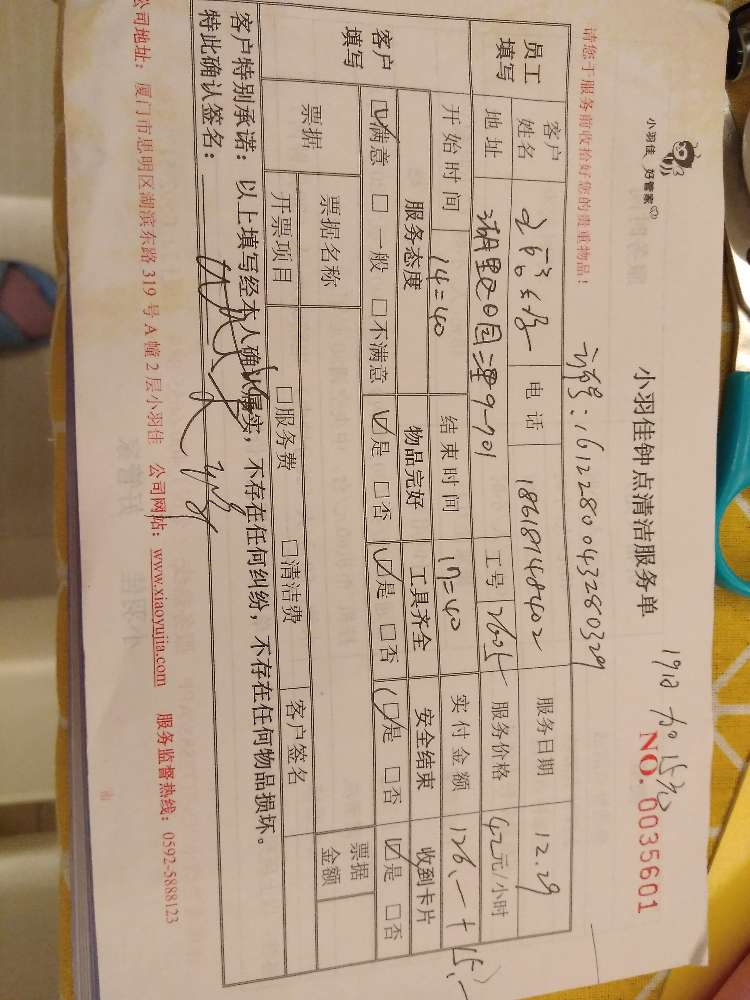 小羽佳 好管家
小羽佳钟点清洁服务单
请您于服务前收拾好您的贵重物品!
NO. 0035601
19日 加15元
订单号:1612280043280329
员工填写
客户姓名
电话 18618748402
服务日期 12.29
地址 湖里区日圆二里9-701
工号 2605
服务价格 42元/小时
开始时间 14=40
结束时间 17=40
实付金额 126.一+15.一
客户填写
服务态度 物品完好 工具齐全 安全结束 收到卡片
☑满意 □一般 □不满意 ☑是 □否 ☑是 □否 ☑是 □否 ☑是 □否
票据
票据名称
票据金额
开票项目 □服务费 □清洁费 客户签名
客户特别承诺:以上填写经本人确认属实,不存在任何纠纷,不存在任何物品损坏。
特此确认签名:
公司地址:厦门市思明区湖滨东路 319 号 A 幢 2 层小羽佳 公司网站:www.xiaoyujia.com 服务监督热线:0592-5888123